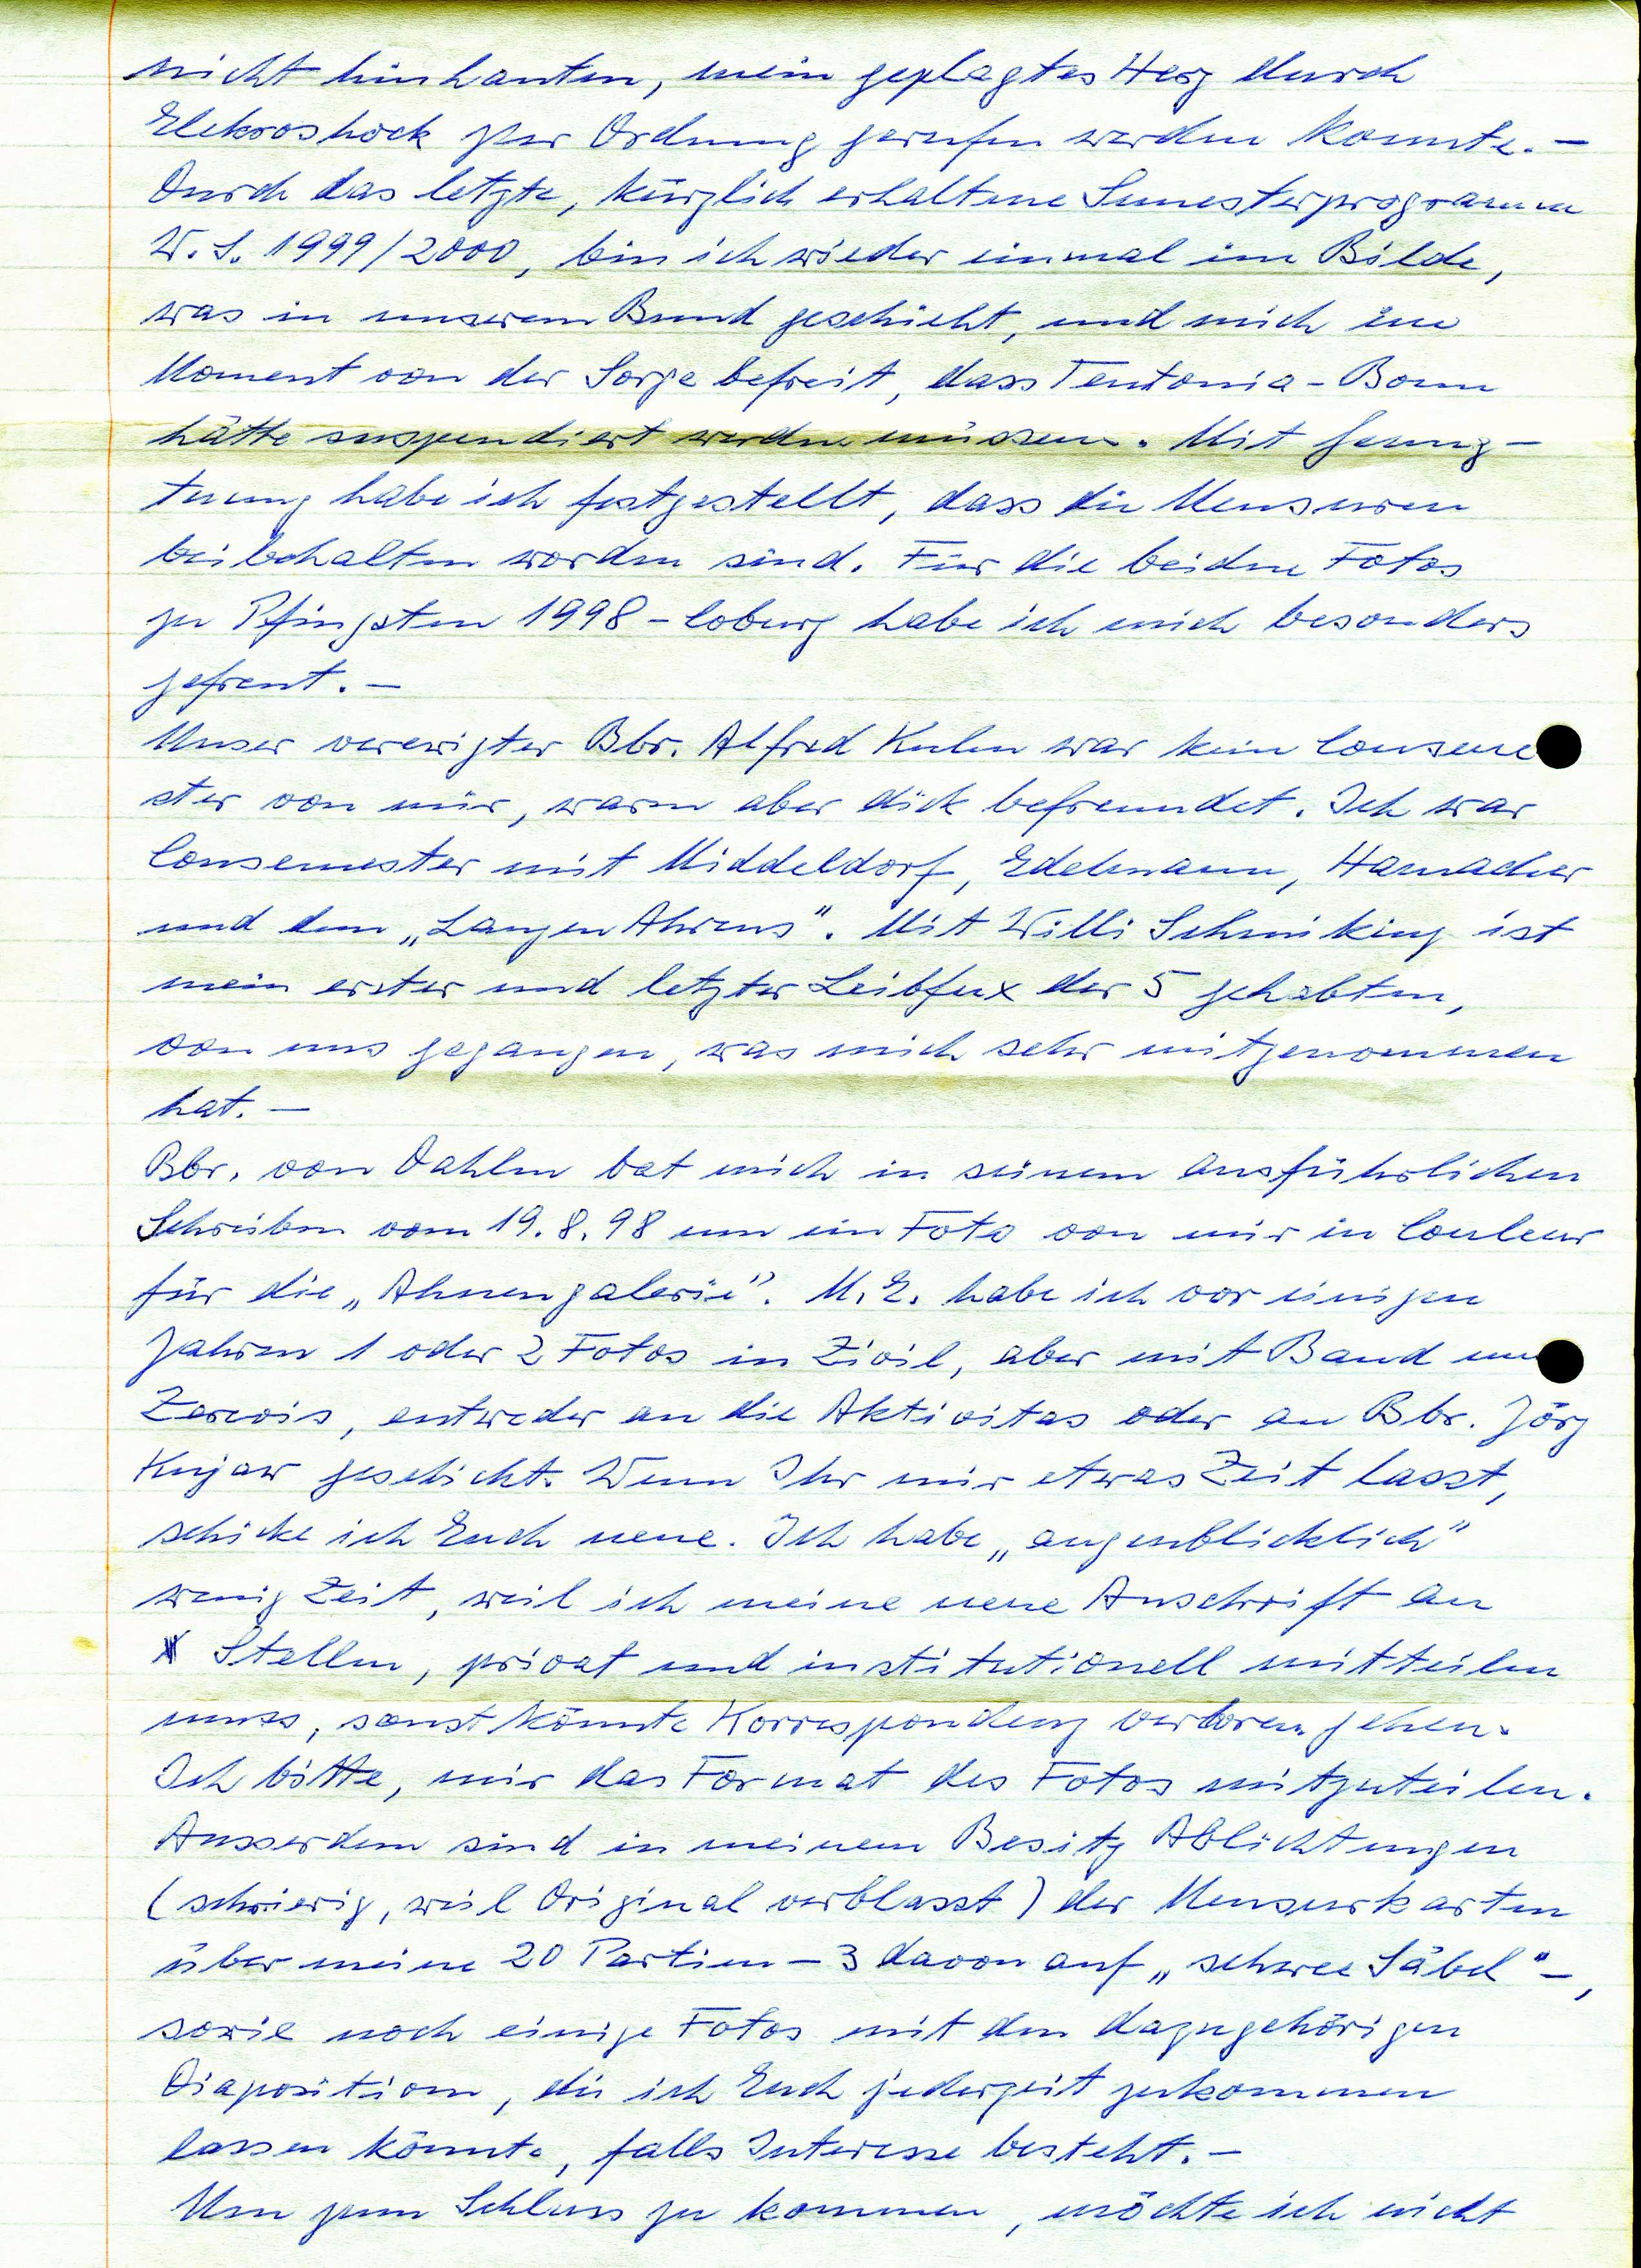 nicht hinhauten, mein geplagtes Herz durch
Elekroshock zur Ordnung gerufen werden konnte. –
Durch das letzte, kürzlich erhaltene Semesterprogramm
W.S. 1999/2000, bin ich wieder einmal im Bilde,
was in unserem Bund geschieht, und mich im
Moment von der Sorge befreit, dass Teutonia-Bonn
hätte suspendiert werden müssen. Mit Genug-
tuung habe ich festgestellt, dass die Mensuren
beibehalten worden sind. Für die beiden Fotos
zu Pfingsten 1998 – Coburg habe ich mich besonders
gefreut. –
Unser verewigter Bbr. Alfred Kuhn war kein Conseme
ster von mir, waren aber dick befreundet. Ich war
Consemester mit Middeldorf, Edelmann, Hamacher
und dem „Langen Ahrens". Mit Willi Schmiking ist
mein erster und letzter Leibfux der 5 gehabten,
von uns gegangen, was mich sehr mitgenommen
hat. –
Bbr. von Dahlen bat mich in seinem ausführlichen
Schreiben vom 19.8.98 um ein Foto von mir in Couleur
für die „Ahnengalerie". M.E. habe ich vor einigen
Jahren 1 oder 2 Fotos in Zivil, aber mit Band un
Zerevis, entweder an die Aktivitas oder an Bbr. Jörg
Kujaw geschickt. Wenn Ihr mir etwas Zeit lasst,
schicke ich Euch neue. Ich habe „augenblicklich"
wenig Zeit, weil ich meine neue Anschrift an
X Stellen, privat und institutionell mitteilen
muss, sonst könnte Korrespondenz verloren gehen.
Ich bitte, mir das Format des Fotos mitzuteilen.
Ausserdem sind in meinem Besitz Ablichtungen
(schwierig, weil Original verblasst) der Mensurkarten
über meine 20 Partien – 3 davon auf „schwere Säbel" –,
sowie noch einige Fotos mit den dazugehörigen
Diapositiven, die ich Euch jederzeit zukommen
lassen könnte, falls Interesse besteht. –
Um zum Schluss zu kommen, möchte ich nicht